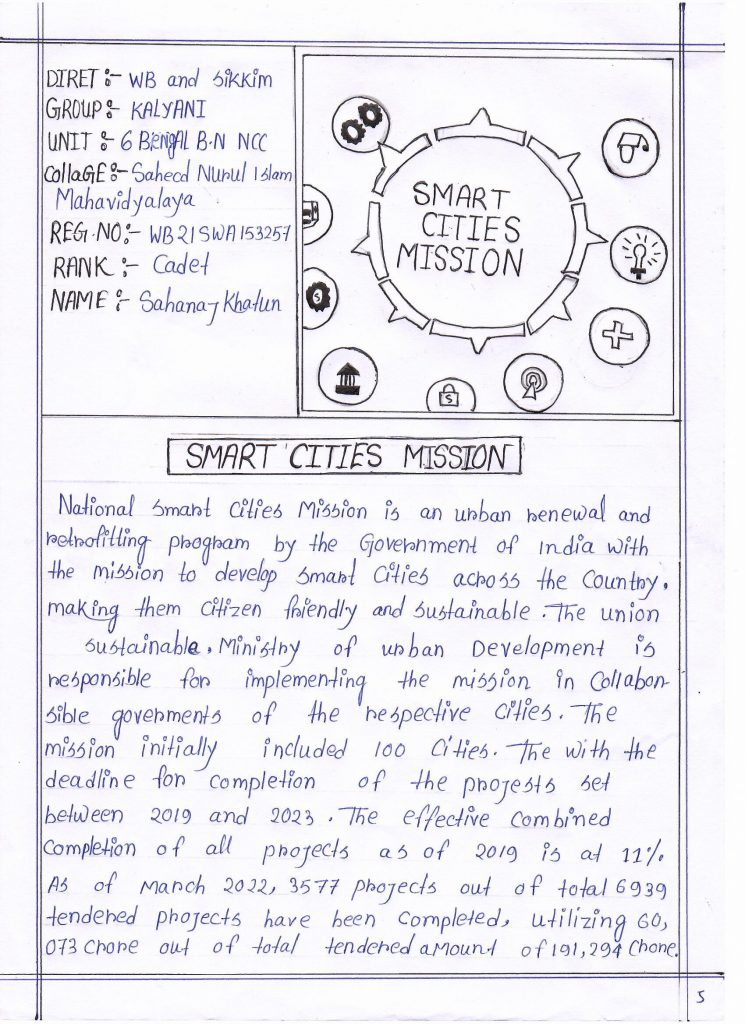 DIRET :- WB and Sikkim
GROUP :- KALYANI
UNIT :- 6 BENGAL B.N NCC
COllaGE :- Saheed Nurul Islam
Mahavidyalaya
REG.NO :- WB21SWA153257
RANK :- Cadet
NAME :- Sahanaj Khatun
SMART
CITIES
MISSION
S
S
SMART CITIES MISSION
National Smart Cities Mission is an urban renewal and
retrofitting program by the Government of india with
the mission to develop smart Cities across the Country.
making them Citizen friendly and sustainable. The union
sustainable. Ministry of urban Development is
responsible for implementing the mission in Collabor-
sible goverments of the respective Cities. The
mission initially included 100 Cities. The with the
deadline for completion of the projests set
between 2019 and 2023. The effective combined
Completion of all projects as of 2019 is at 11%.
As of March 2022, 3577 projects out of total 6939
tendered projects have been completed, utilizing 60,
073 Crore out of total tendered amount of 191,294 Crore.
5